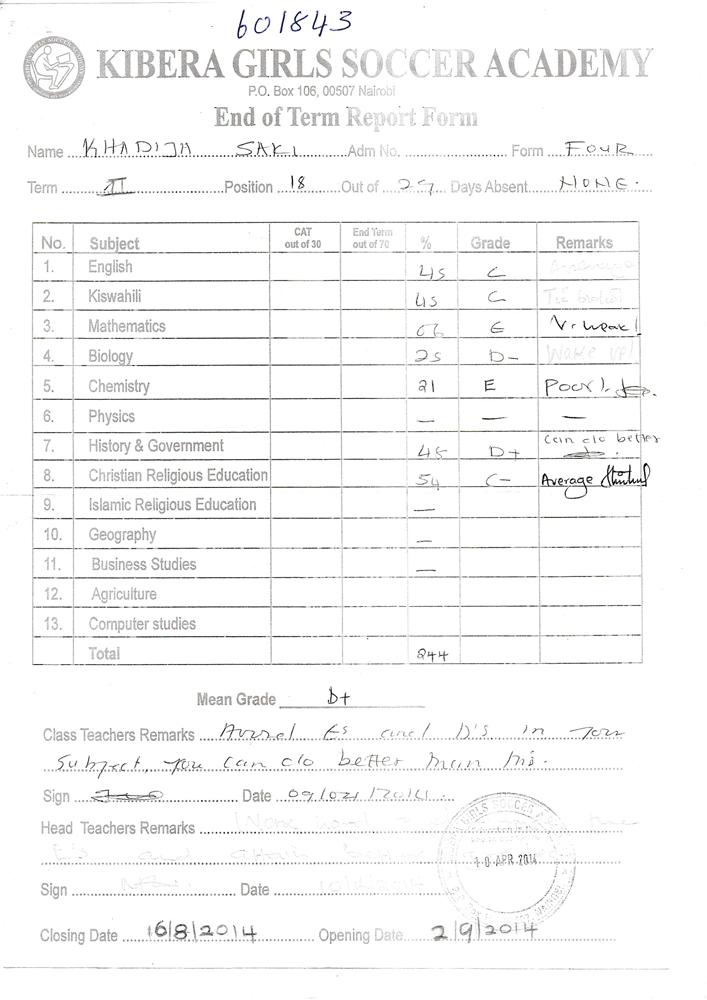 601843
KIBERA GIRLS SOCCER ACADEMY
P.O. Box 106, 00507 Nairobi
End of Term Report Form
Name KHADIJA SAKI Adm No. Form FOUR
Term II Position 18 Out of 29 Days Absent NONE.
No. Subject CAT out of 30 End Term out of 70 % Grade Remarks
1. English 45 C
2. Kiswahili 45 C Tia bidii
3. Mathematics 06 E V. weak!
4. Biology 25 D- Wake up!
5. Chemistry 21 E Poor!
6. Physics — — —
7. History & Government 48 D+ Can do better
8. Christian Religious Education 54 C- Average
9. Islamic Religious Education —
10. Geography —
11. Business Studies —
12. Agriculture
13. Computer studies
Total 244
Mean Grade D+
Class Teachers Remarks Avoid Es and D's in your
subject, you can do better than this.
Sign Date
Head Teachers Remarks Work hard
E's and
Sign Date
GIRLS SOCCER
10 APR 2014
Closing Date 16/8/2014 Opening Date 2/9/2014